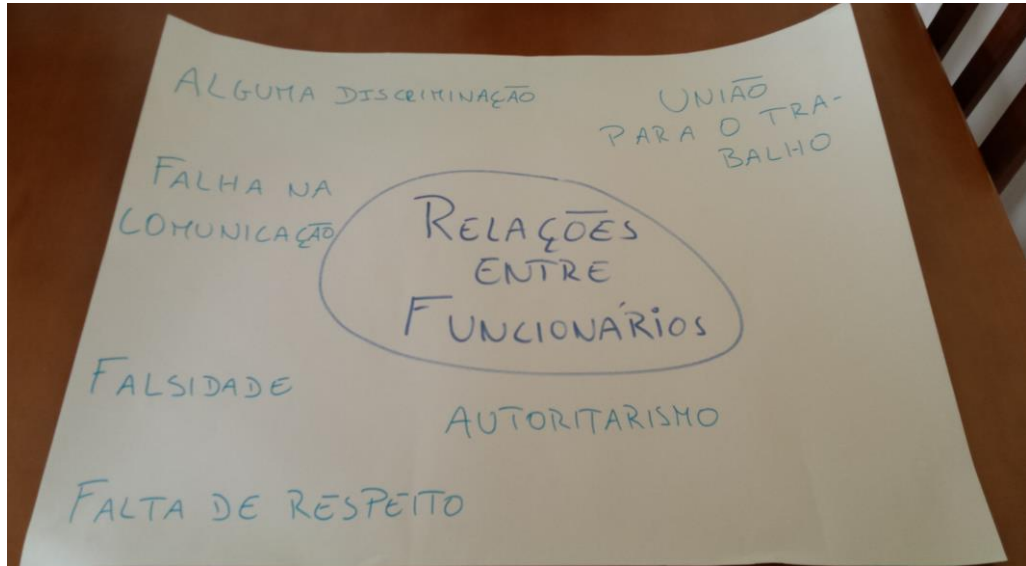 ALGUMA DISCRIMINAÇÃO
UNIÃO
PARA O TRA-
BALHO
FALHA NA
COMUNICAÇÃO
RELAÇÕES
ENTRE
FUNCIONÁRIOS
FALSIDADE
AUTORITARISMO
FALTA DE RESPEITO